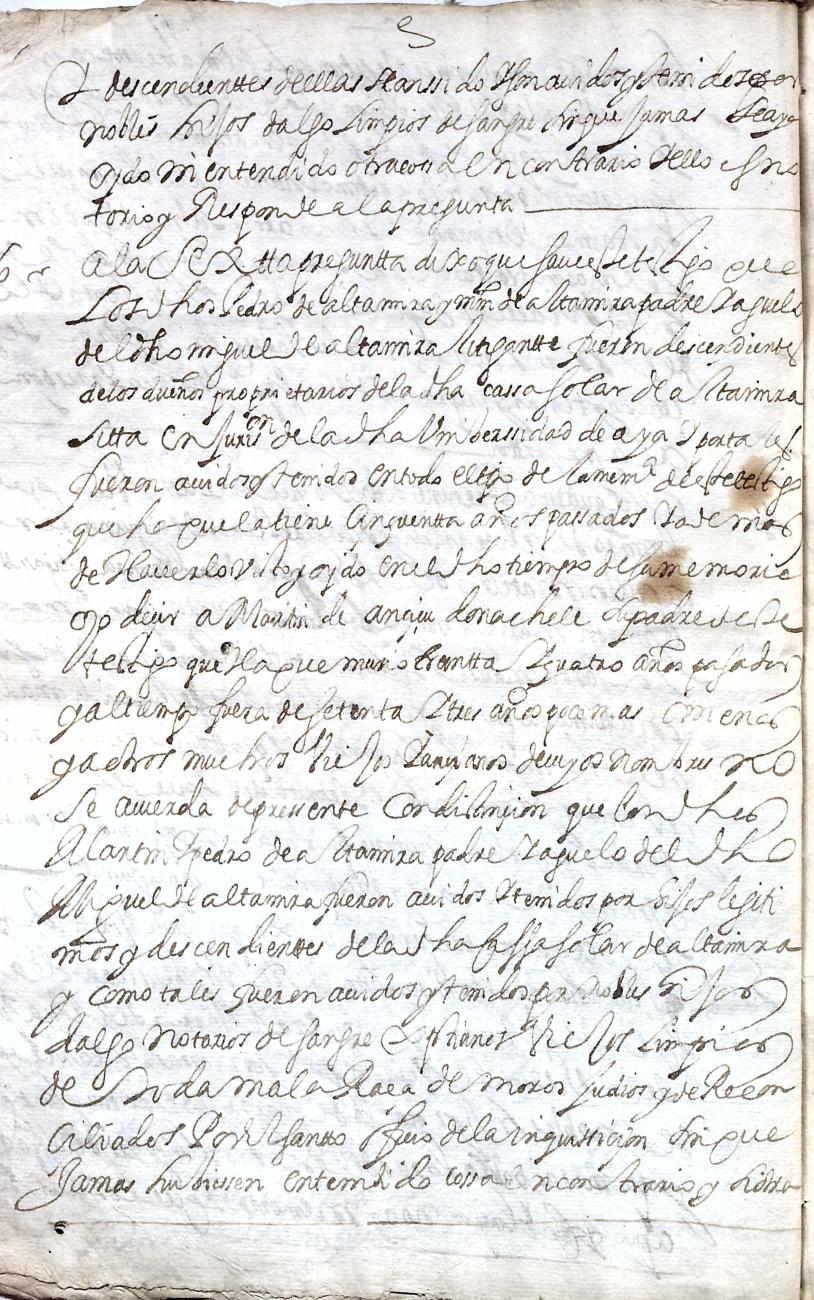 descendienttes de ellas han ssido y son avidos y tenidos por
nobles hijos dalgo limpios de sangre sin que jamas se aya
oydo ni entendido otra cossa en contrario dello es no
torio y Responde a la pregunta
6
A la Sextta preguntta dixo que save este testigo que
Los dhos Pedro de altamira y mrn de altamira padre y aguelo
del dho miguel de altamira litigantte fueron descendientes
de los dueños proprietarios de la dha cassa solar de altamira
sitta en Jurison de la dha Uniberssidad de aya y por tales
fueron avidos y tenidos en todo el tpo de la memª de este testigo
que ha que la tiene cinquentta años passados y ademas
de haverlo visto y oydo en el dho tiempo de su memoria
oyo decir a Martin de padre de este
testigo que ha que murio treintta y quatro años pasados
y al tiempo fuera de setenta y tres años poco mas o menos
y a otros muchos Viejos y ancianos de cuyos nombres no
se acuerda de pressente Con distinçion que los dhos
Martin y pedro de altamira padre y aguelo del dho
Miguel de altamira fueron avidos y tenidos por hijos legiti
mos y descendienttes de la dha Cassa solar de altamira
y como tales fueron avidos y tenidos por nobles hijos
dalgo notorios de sangre Xpstianos Viejos Limpios
de toda mala Raça de moros judios y de Recon
ciliados Por el santto oficio de la inquissicion sin que
Jamas huviessen entendido cossa en contrario y